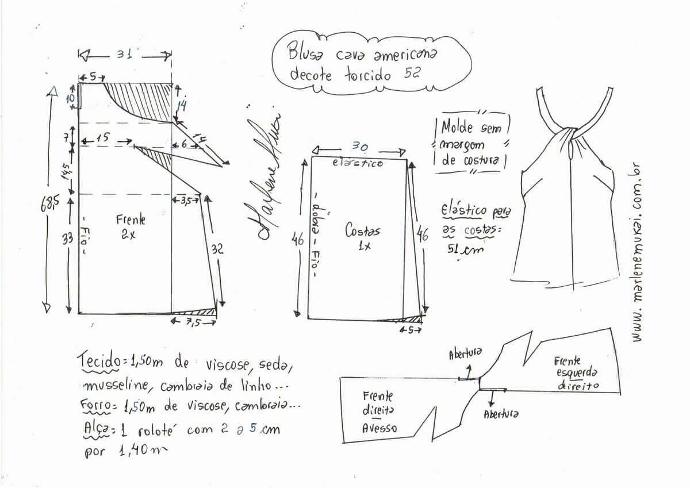 Blusa cava americana
decote torcido 52
31
5
10
14
14
7
15
6
14,5
68,5
3,5
Frente
2x
- Fio -
33
32
7,5
Marlene Mukai
30
elástico
46
- dobra - Fio -
Costas
1x
46
5
Molde sem
margem
de costura
Elástico para
as costas:
51 cm
www.marlenemukai.com.br
Tecido = 1,50m de viscose, seda,
musseline, cambraia de linho...
Forro = 1,50m de viscose, cambraia...
Alça = 1 roloté com 2 a 5 cm
por 1,40m
Abertura
Frente
esquerda
direito
Frente
direita
Avesso
Abertura